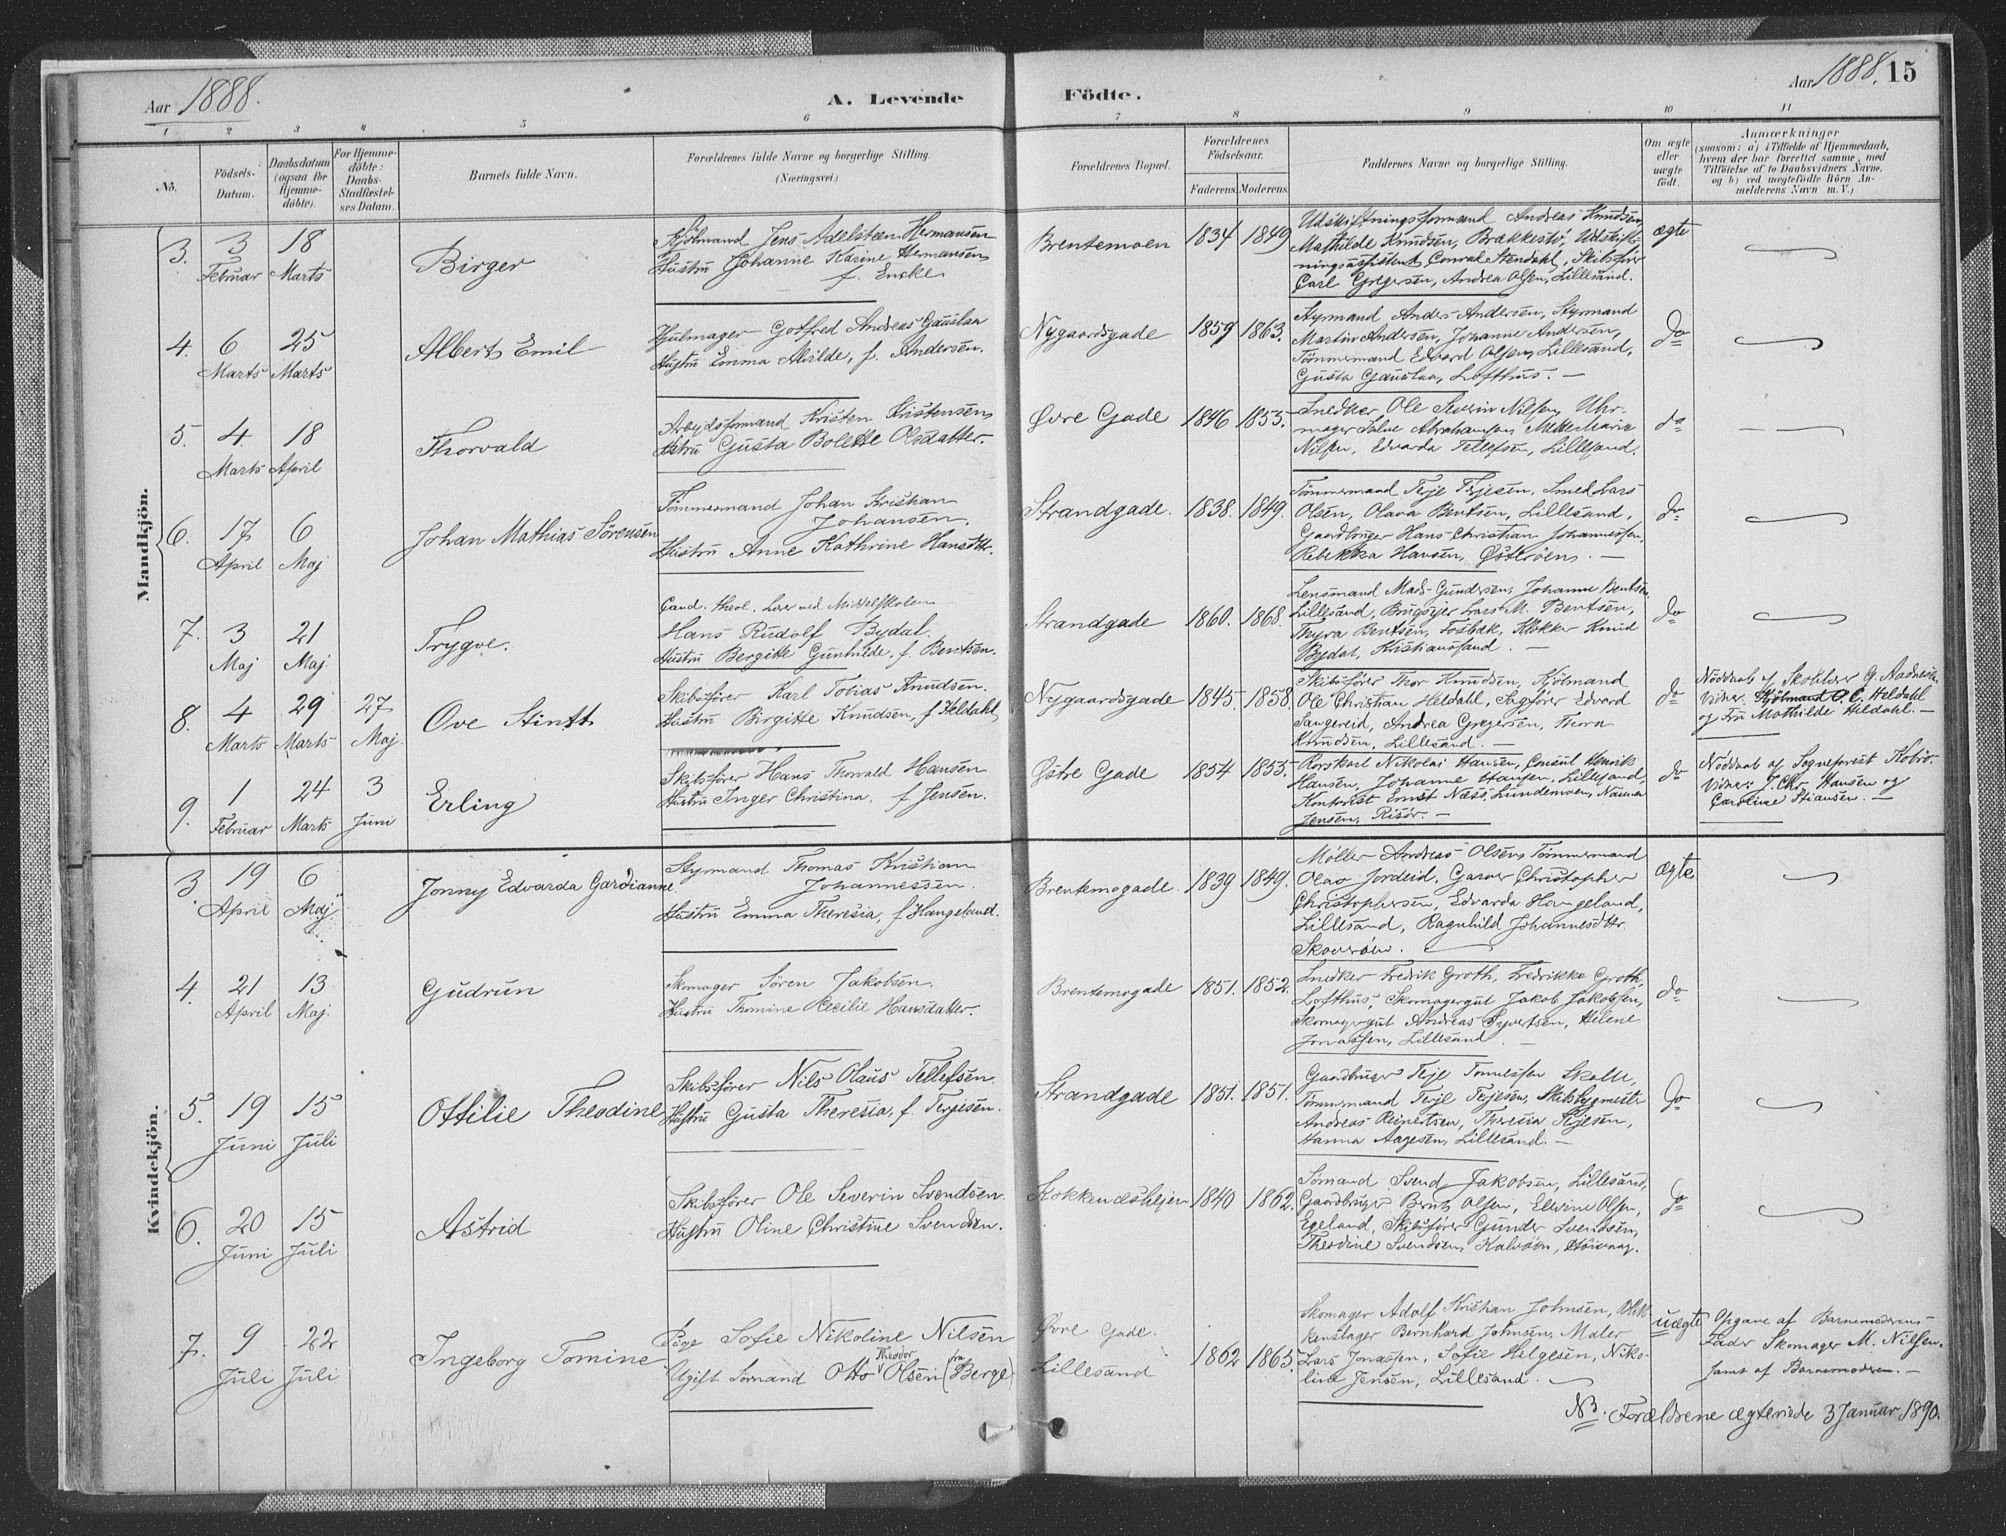 Aar 1888.
A. Levende Födte.
Aar 1888. 15
1 2 3 4 5 6 7 8 9 10 11
No.
Födsels-Datum.
Daabsdatum (ogsaa for Hjemme-döbte).
For Hjemme-döbte: Daabs-Stadfæstel-ses Datum.
Barnets fulde Navn.
Forældrenes fulde Navne og borgerlige Stilling. (Næringsvei.)
Forældrenes Bopæl.
Forældrenes Födselsaar.
Faderens. Moderens.
Faddernes Navne og borgerlige Stilling.
Om ægte eller uægte födt.
Anmærkninger
(saasom: a) i Tilfælde af Hjemmedaab,
hvem der har forrettet samme, med
Tilföielse af to Daabsvidners Navne,
og b) ved uægtefödte Börn An-
melderens Navn m. V.)
Mandkjön.
3. 3 Februar 18 Marts
Birger
Kjölmand Jens Adelsteen Hermansen
Hustru Johanne Karine Hermansen
f. Encke
Brentemoen 1834 1849
Udskiftningsformand Andreas Knudsen,
Mathilde Knudsen, Brækkestö, Udskift-
ningsassistent Conrad Stendahl, Skibsförer
Carl Gregersen, Andrea Olsen, Lillesand.
ægte
4. 6 Marts 25 Marts
Albert Emil
Hjulmager Gotfred Andreas Gauslaa
Hustru Emma Alvilde, f. Andersen.
Nygaardsgade 1859 1863.
Styrmand Anders Andersen, Styrmand
Martin Andersen, Johanne Andersen,
Tömmermand Edvard Olsen, Lillesand,
Gusta Gauslaa, Lofthus. —
do
5. 4 Marts 18 April
Thorvald
Arbeidsformand Kristen Kristensen
Hustru Gusta Bolette Olsdatter.
Øvre Gade 1846 1853.
Snedker Ole Severin Nilsen, Uhr-
mager Salve Abrahamsen, Mette Marie
Nilsen, Edvarda Tellefsen, Lillesand.
do
6. 17 April 6 Maj
Johan Mathias Sörensen
Tömmermand Johan Kristian
Johansen.
Hustru Anne Kathrine Hansdtr.
Strandgade. 1838. 1849.
Tömmermand Terje Terjesen, Smed Lars
Olsen, Olava Bentsen, Lillesand,
Gaardbruger Hans Christian Johannessen,
Rebekka Hansen, Østeröen. —
do
7. 3 Maj 21 Maj
Trygve.
Cand. theol. Lærer ved Middelskolen
Hans Rudolf Bydal.
Hustru Bergitte Gunhilde, f. Bentsen.
Strandgade 1860. 1868.
Lensmand Mads Gundersen, Johanne Bentsen
Lillesand, Brugseier Lars M. Bentsen,
Thyra Bentsen, Fosbæk, Klokker Knud
Bydal, Kristianssand. —
do
8. 4 Marts 29 Marts 27 Maj.
Ove Stintt
Skibsförer Karl Tobias Knudsen.
Hustru Birgitte Knudsen, f. Heldahl
Nygaardsgade 1845. 1858.
Skibsförer Thor Knudsen, Kjölmand
Ole Christian Heldahl, Sagförer Edvard
Sangereid, Andrea Gregersen, Thora
Knudsen, Lillesand. —
do
Nöddaab af Skolelærer G. Aadnesen
Vidner: Kjölmand O. C. Heldahl
og Fru Mathilde Heldahl. —
9. 1 Februar 24 Marts 3 Juni
Erling
Skibsförer Hans Thorvald Hansen
Hustru Inger Christina, f. Jensen.
Østre Gade 1854 1853.
Rorskarl Nikolai Hansen, Consul Henrik
Hansen, Johanne Hansen, Lillesand,
Kontorist Ernst Næss, Lundemoen, Nanna
Jensen, Risör. —
do
Nöddaab af Sogneprest Kobro.
Vidner: J. Chr. Hansen og
Caroline Stiansen. —
Kvindekjön.
3. 19 April 6 Maj
Jonny Edvarda Gardianne
Styrmand Thomas Kristian
Johannessen.
Hustru Emma Theresia, f. Hangeland.
Brentemogade 1839 1849.
Møller Andreas Olsen, Tömmermand
Olav Jordeid, Garver Christopher
Christophersen, Edvarda Hangeland,
Lillesand, Ragnhild Johannesdtr.
Skoveröen.
ægte
4. 21 April 13 Maj.
Gudrun
Skomager Sören Jakobsen.
Hustru Thomine Cecilie Hansdatter.
Brentemogade 1851. 1852.
Snedker Fredrik Groth, Fredrikke Groth,
Lofthus, Skomagergut Jakob Jakobsen,
Skomagergut Andreas Syvertsen, Helene
Jonassen, Lillesand
do
5. 19 Juni 15 Juli
Ottilie Theodine
Skibsförer Nils Olaus Tellefsen.
Hustru Gusta Theresia, f. Terjesen.
Strandgade 1851. 1851.
Gaardbruger Terje Tomessen Skolte,
Tömmermand Terje Terjesen, Skibbygmester
Andreas Reinertsen, Theresia Terjesen,
Hanna Aagesen, Lillesand. —
do
6. 20 Juni 15 Juli
Astrid
Skibsförer Ole Severin Svendsen.
Hustru Oline Christine Svendsen.
Kokkenæsheien 1840 1862.
Sömand Svend Jakobsen, Lillesand,
Gaardbruger Bernt Olsen, Elevine Olsen,
Egeland, Skibsförer Gunder Svendsen,
Theodine Svendsen, Kalvöen, Höivaag.
do
7. 9 Juli 22 Juli
Ingeborg Tomine
Pige Sofie Nikoline Nilsen
Ugift Sömand Otto Theodor Olsen (fra Berge)
Øvre Gade.
Lillesand 1862 1865.
Skomager Adolf Kristian Johnsen, Blik-
kenslager Bernhard Johnsen, Maler
Lars Jonassen, Sofie Helgesen, Niko-
line Jensen, Lillesand.
uægte
Opgave af Barnemoderens
Fader Skomager M. Nilsen
samt af Barnemoderen. —
NB. Forældrene ægteviede 3 Januar 1890.